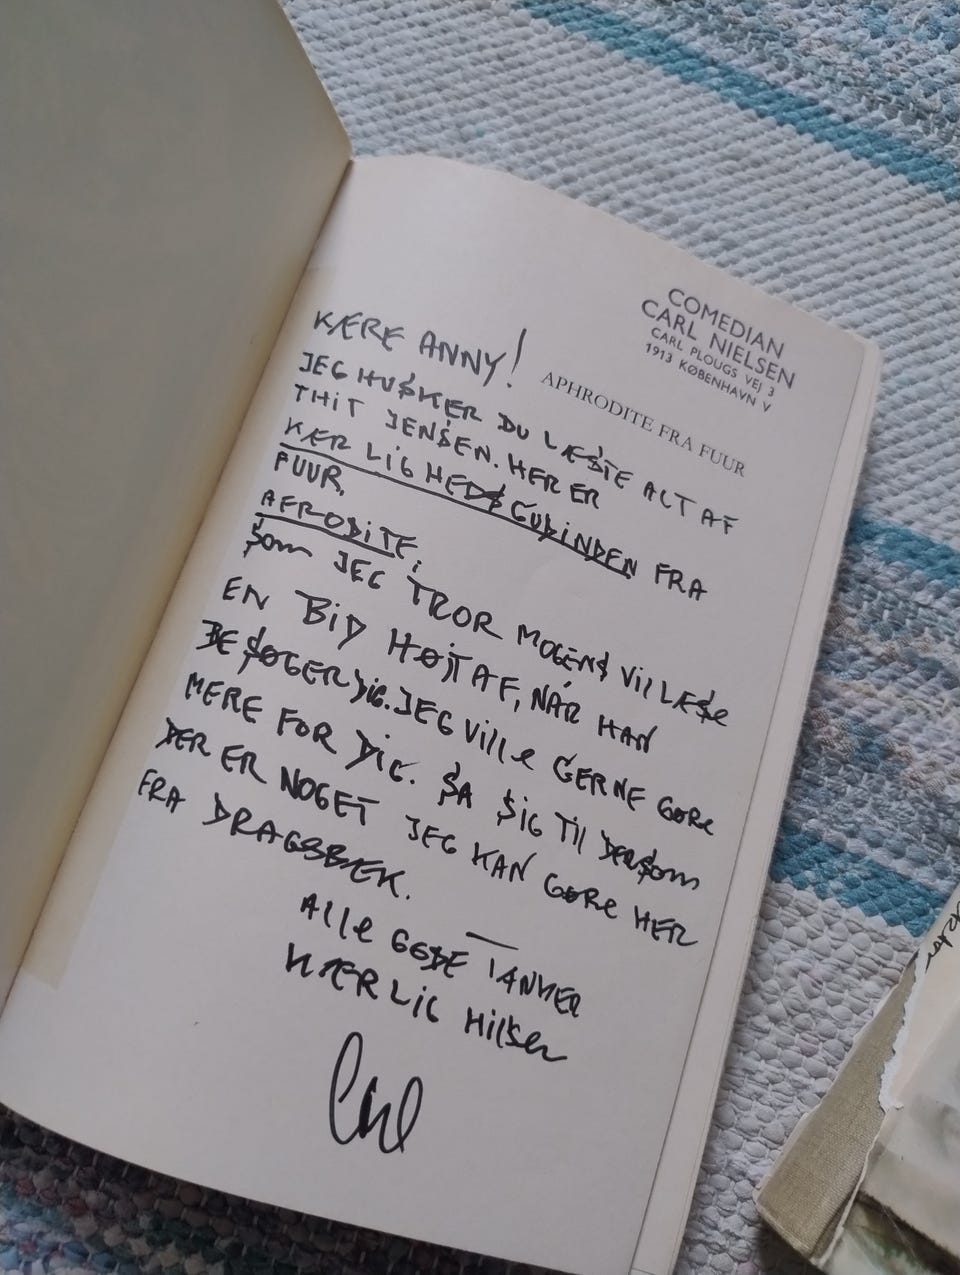 COMEDIAN
CARL NIELSEN
CARL PLOUGS VEJ 3
1913 KØBENHAVN V
APHRODITE FRA FUUR
KÆRE ANNY!
JEG HUSKER DU LÆSTE ALT AF
THIT JENSEN. HER ER
KÆRLIGHEDSGUDINDEN FRA
FUUR,
AFRODITE,
SOM JEG TROR MOGENS VIL LÆSE
EN BID HØJT AF, NÅR HAN
BESØGER DIG. JEG VILLE GERNE GØRE
MERE FOR DIG. SÅ SIG TIL DERSOM
DER ER NOGET JEG KAN GØRE HER
FRA DRAGSBÆK.
ALLE GODE TANKER
KÆRLIG HILSEN
Carl